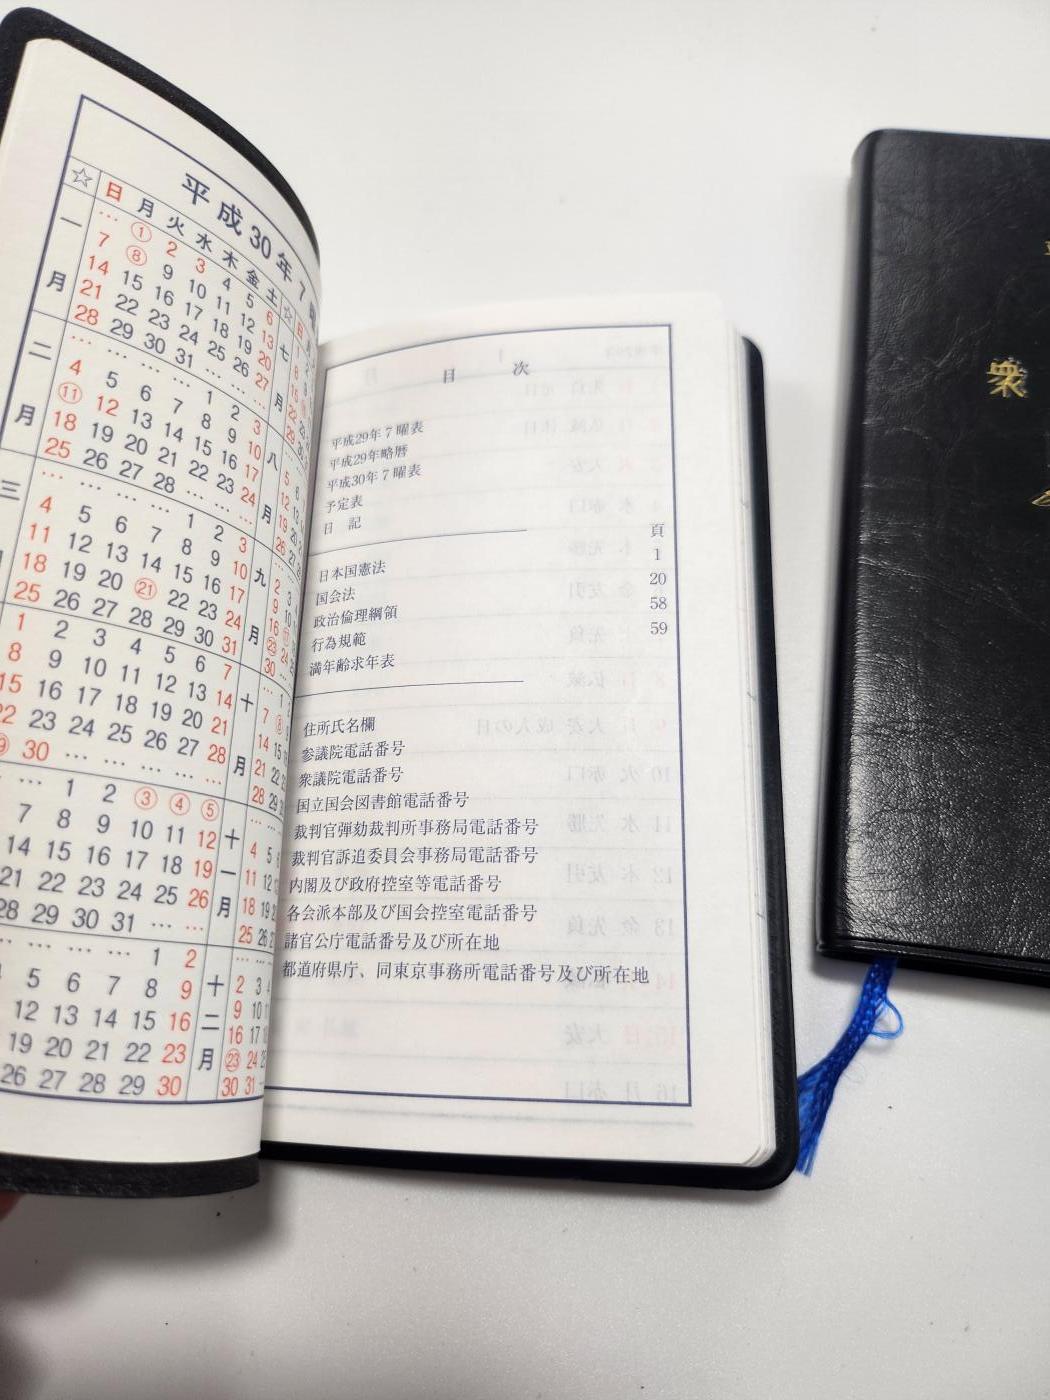 平成30年7曜
☆ 日 月 火 水 木 金 土
一月
… ① 2 3 4 5 6
7 ⑧ 9 10 11 12 13
14 15 16 17 18 19 20
21 22 23 24 25 26 27
28 29 30 31 … … …
二月
… … … … 1 2 3
4 5 6 7 8 9 10
⑪ 12 13 14 15 16 17
18 19 20 21 22 23 24
25 26 27 28 … … …
三
… … … … 1 2 3
4 5 6 7 8 9 10
11 12 13 14 15 16 17
18 19 20 ㉑ 22 23 24
25 26 27 28 29 30 31
1 2 3 4 5 6 7
8 9 10 11 12 13 14
15 16 17 18 19 20 21
22 23 24 25 26 27 28
30 … … … … …
… 1 2 ③ ④ ⑤
7 8 9 10 11 12
14 15 16 17 18 19
21 22 23 24 25 26
28 29 30 31 … …
… … … 1 2
5 6 7 8 9
12 13 14 15 16
19 20 21 22 23
26 27 28 29 30
☆ 日
七月
八月
九月
十月
十一月
十二月
目次
平成29年7曜表
平成29年略暦
平成30年7曜表
予定表
日記
頁
日本国憲法 1
国会法 20
政治倫理綱領 58
行為規範 59
満年齢求年表
住所氏名欄
参議院電話番号
衆議院電話番号
国立国会図書館電話番号
裁判官弾劾裁判所事務局電話番号
裁判官訴追委員会事務局電話番号
内閣及び政府控室等電話番号
各会派本部及び国会控室電話番号
諸官公庁電話番号及び所在地
都道府県庁、同東京事務所電話番号及び所在地
衆